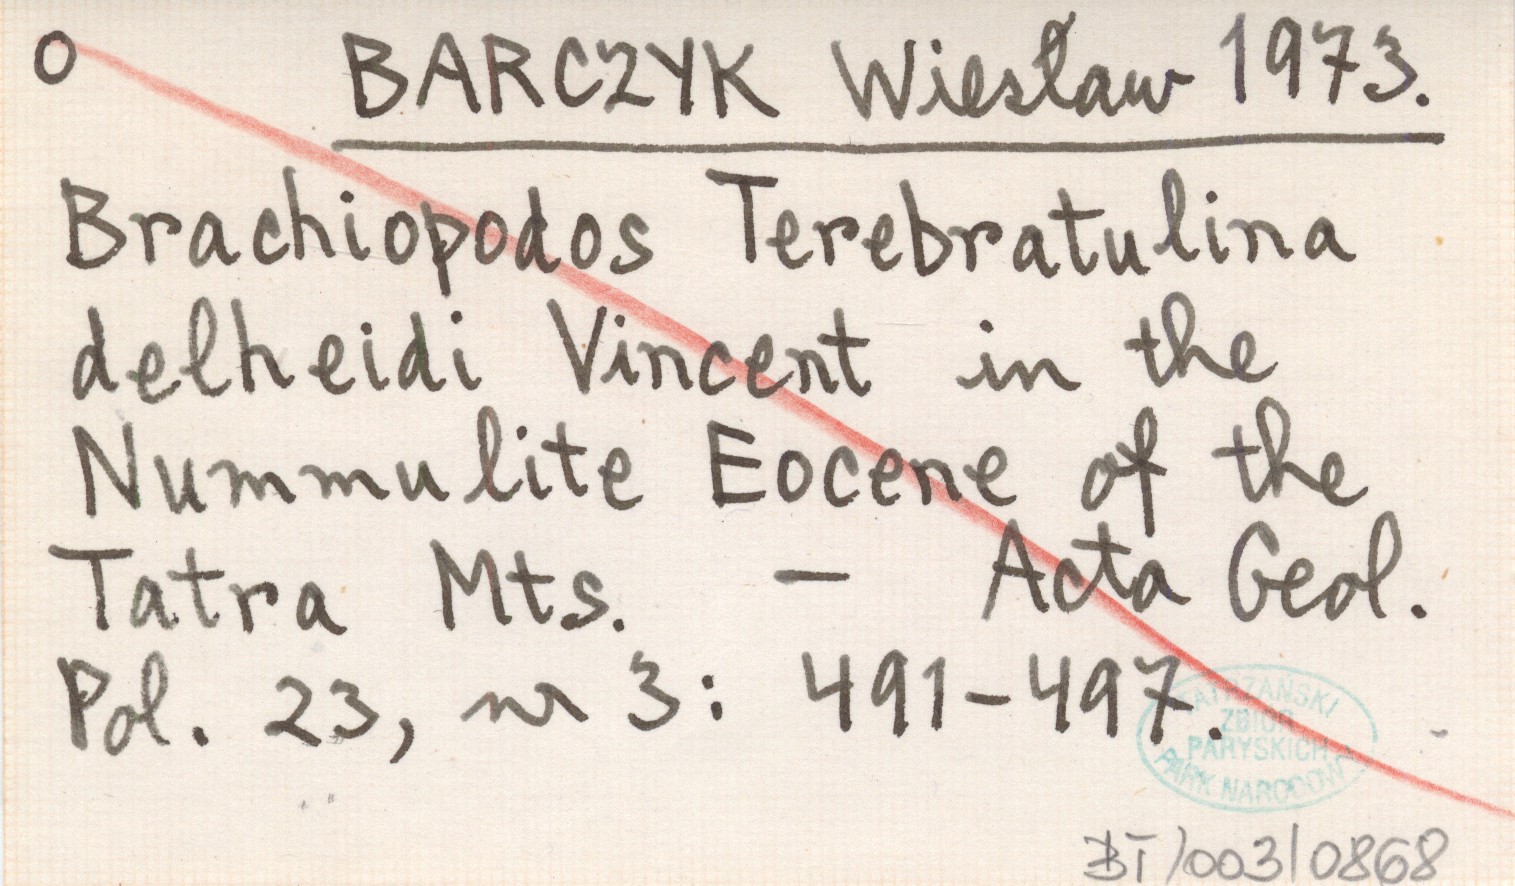 O BARCZYK Wiesław 1973.
Brachiopodos Terebratulina
delheidi Vincent in the
Nummulite Eocene of the
Tatra Mts. — Acta Geol.
Pol. 23, nr 3: 491-497.
TATRZAŃSKI
ZBIÓR
PARYSKICH
PARK NARODOWY
BT/003/0868